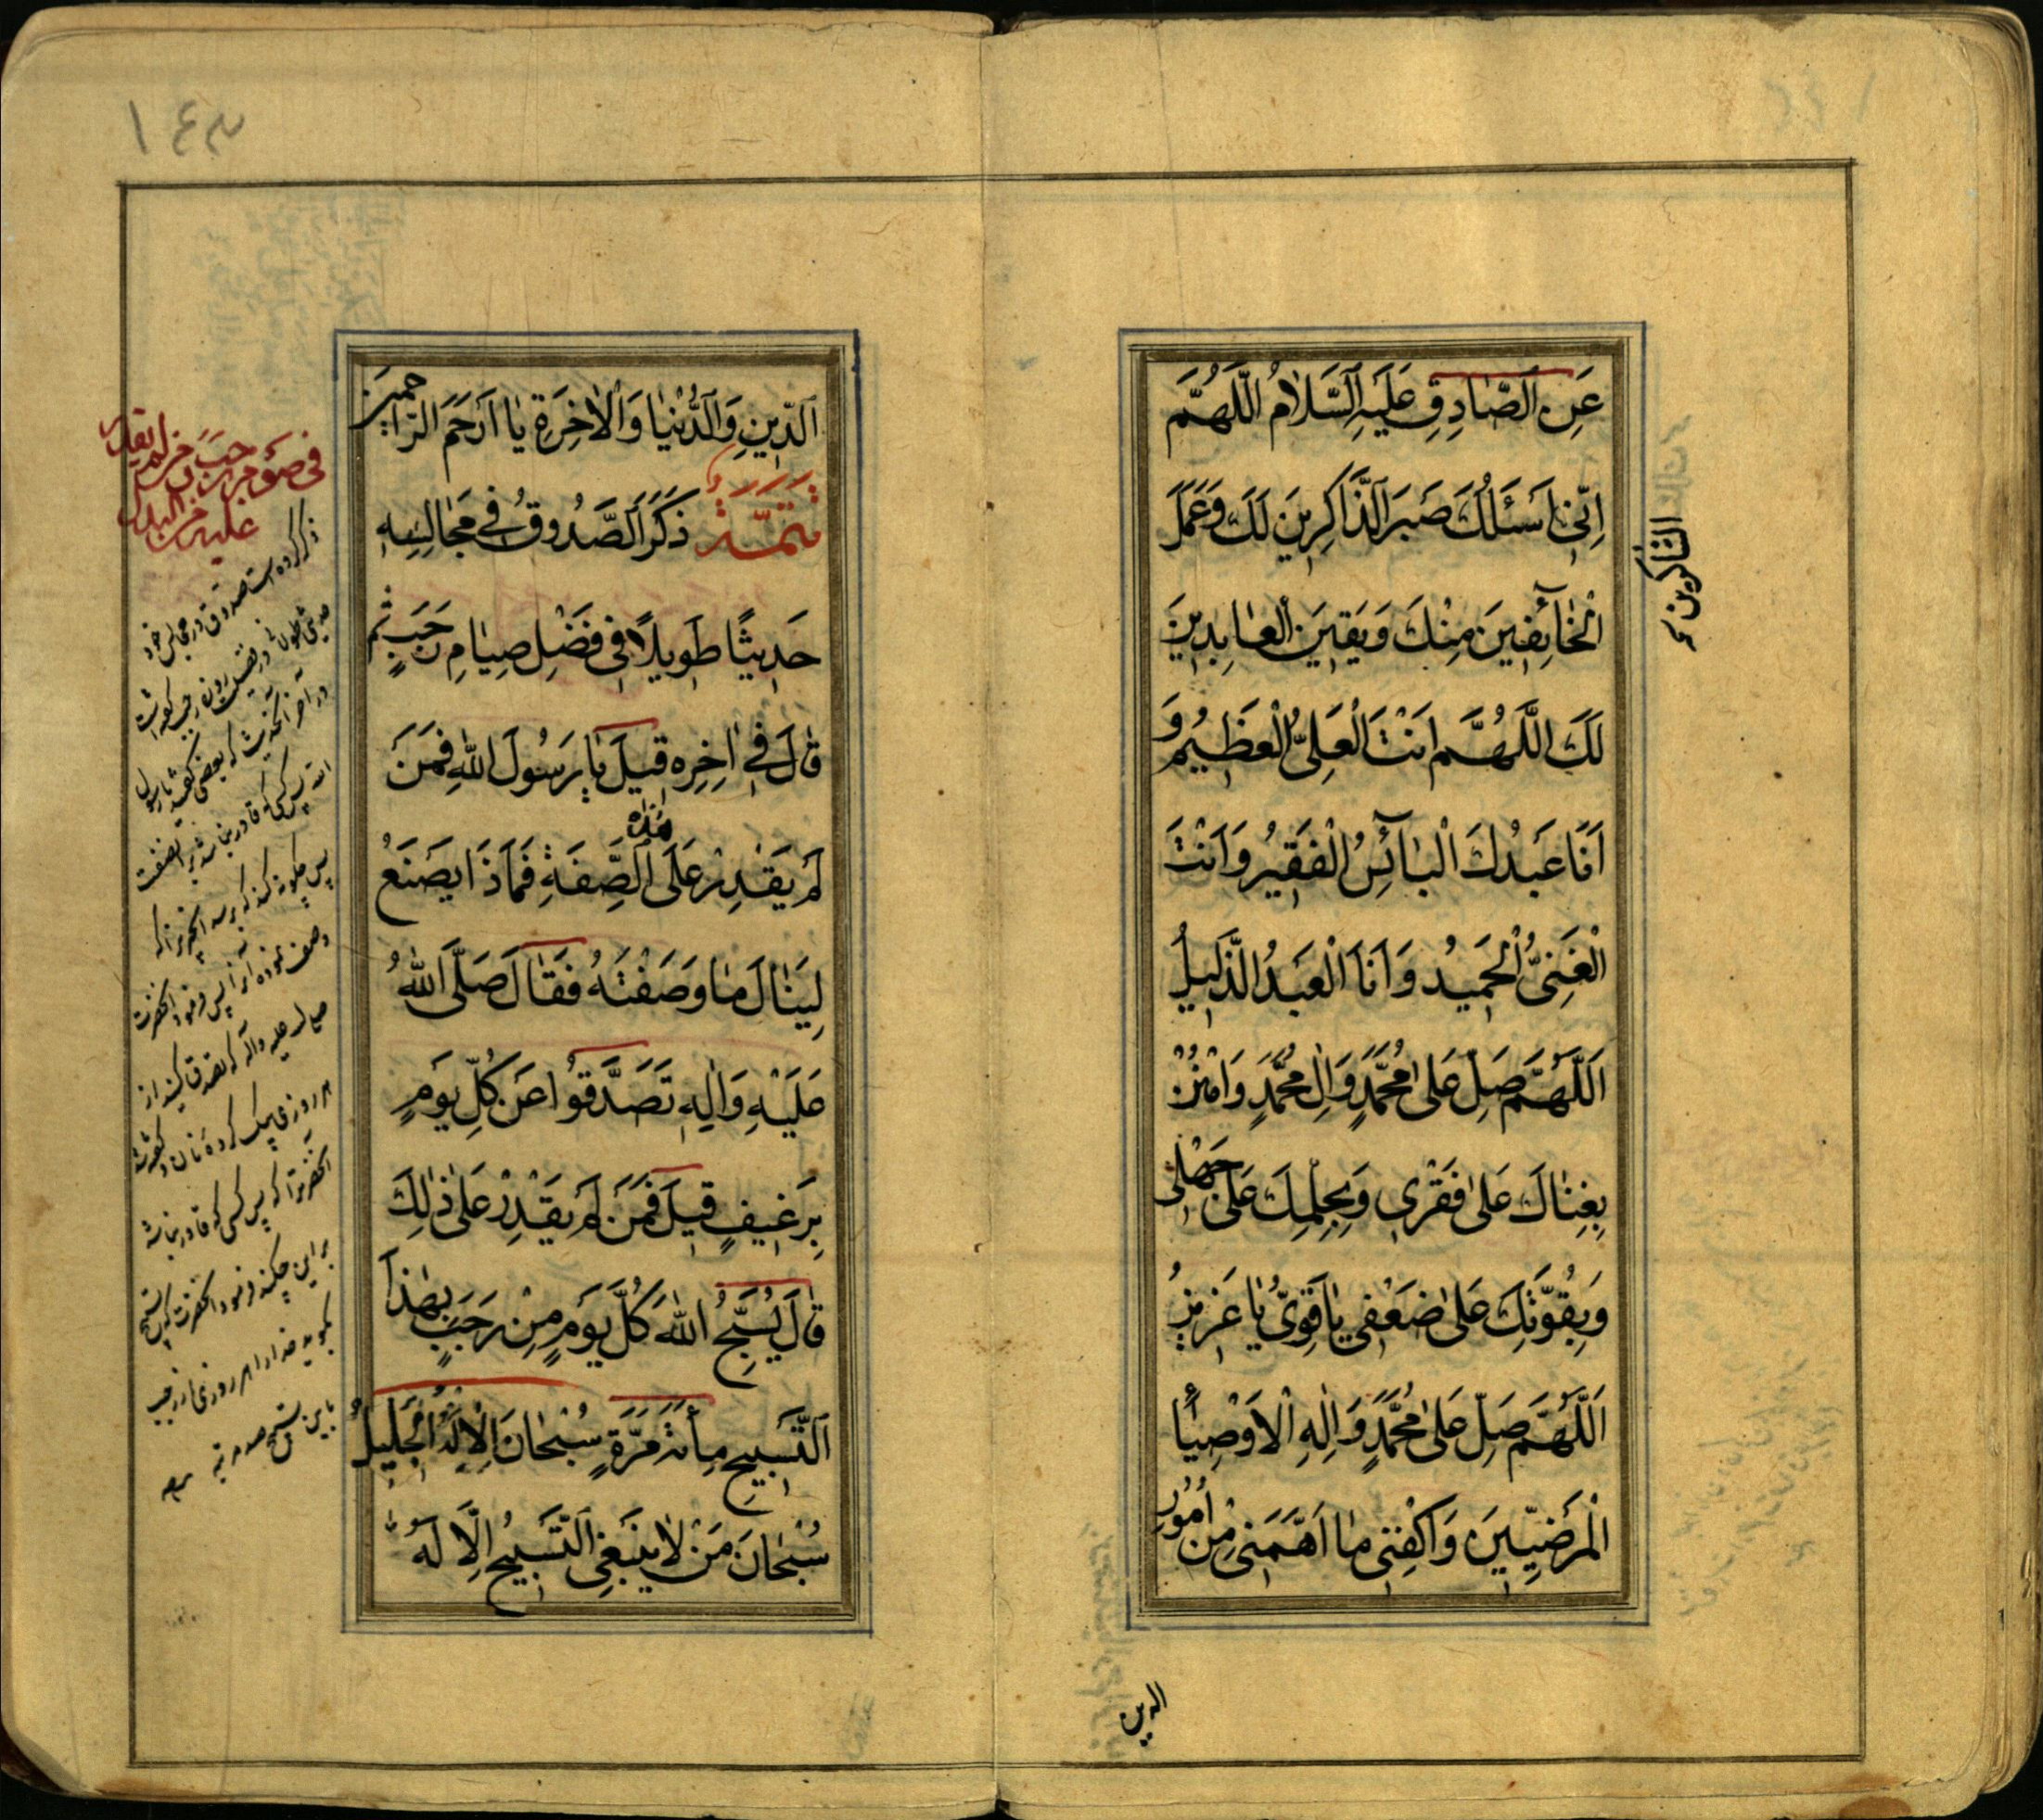 عَنِ الصّادِقِ عَلَيهِ السَّلامُ اللَّهُمَّ
اِنّي اَسْئَلُكَ صَبَرَ الذَّاكِرينَ لَكَ وَعَمَلَ
الشاكرين
الْخآئِفينَ مِنْكَ وَيَقينَ الْعابِدينَ
لَكَ اللَّهُمَّ اَنْتَ الْعَلِيُّ الْعَظيمُ وَ
اَنَا عَبْدُكَ الْبآئِسُ الْفَقيرُ وَاَنْتَ
الْغَنِيُّ الْحَميدُ وَاَنَا الْعَبْدُ الذَّليلُ
اَللّهُمَّ صَلِّ عَلى مُحَمَّدٍ وَالِ مُحَمَّدٍ وَامْنُنْ
بِغِناكَ عَلى فَقْري وَبِحِلْمِكَ عَلى جَهْلي
وَبِقُوَّتِكَ عَلى ضَعْفي يا قَوِيُّ يا عَزيزُ
اَللّهُمَّ صَلِّ عَلى مُحَمَّدٍ وَالِهِ الْاَوْصِيآءِ
الْمَرْضِيّينَ وَاكْفِني ما اَهَمَّني مِنْ اُمُورِ
الدين
١٤٣
الدّينِ وَالدُّنْيا وَالْاخِرَةِ يا اَرْحَمَ الرّاحِمينَ
تتمّة ذَكَرَ الصَّدُوقُ في مَجالِسِهِ
حَديثًا طَويلًا في فَضْلِ صِيامِ رَجَبٍ ثُم
قالَ في اخِرِه قيلَ يا رَسُولَ اللهِ فَمَنْ
لَمْ يَقْدِرْ عَلَى هذه الصِّفَةِ فَماذَا يَصْنَعُ
لِيَنالَ ما وَصَفْتَهُ فَقالَ صَلَّى اللهُ
عَلَيْهِ وَالِهِ تَصَدَّقُوا عَنْ كُلِّ يَوْمٍ
بِرَغيفٍ قيلَ فَمَنْ لَمْ يَقْدِرْ عَلى ذلِكَ
قالَ يُسَبِّحُ اللهَ كُلَّ يَوْمٍ مِنْ رَجَبٍ بِهذَا
التَّسْبيحِ مِائَةَ مَرَّةٍ سُبْحانَ الْاِلهِ الْجَليلِ
سُبْحانَ مَنْ لا يَنْبَغِي التَّسْبيحُ اِلّا لَهُ
ذكر كرده است صدوق در مجالس خود
حديثى طولانى در فضيلت روزه رجب كه گفته است
در آخر آنحديث كه بعضى گفتند يا رسول
الله پس كسى كه قادر نباشد بر اين صفت
پس چگونه كند كه برسد آنچيزى را كه
وصف نموده آنرا پس فرمود آنحضرت
صلى الله عليه وآله كه تصدق كنيد از
هر روزى بيك گرده نان گفته شد
آنحضرت را كه پس كسى كه قادر نباشد
بر اين چه كند فرمود آنحضرت كه تسبيح
بگويد خدا را هر روزى از رجب
باين تسبيح صد مرتبه